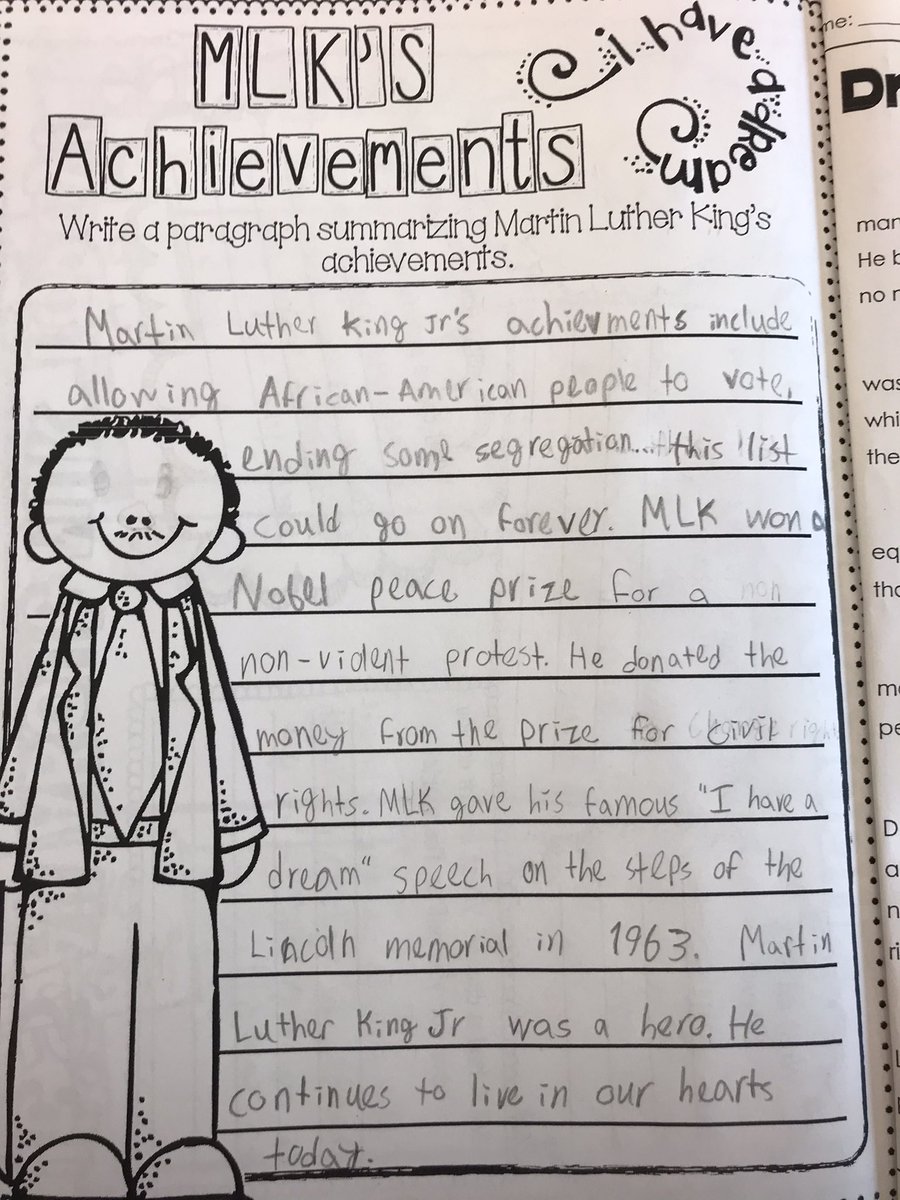 MLK'S
Achievements
I have a dream
Write a paragraph summarizing Martin Luther King's
achievements.
Martin Luther King Jr's achievments include
allowing African-American people to vote,
ending some segregation... this list
could go on forever. MLK won a
Nobel peace prize for a non
non-violent protest. He donated the
money from the prize for Civil
rights. MLK gave his famous "I have a
dream" speech on the steps of the
Lincoln memorial in 1963. Martin
Luther King Jr was a hero. He
continues to live in our hearts
today.
me:
Dr
He b
no r
was
whi
the
eq
pe
D
a
n